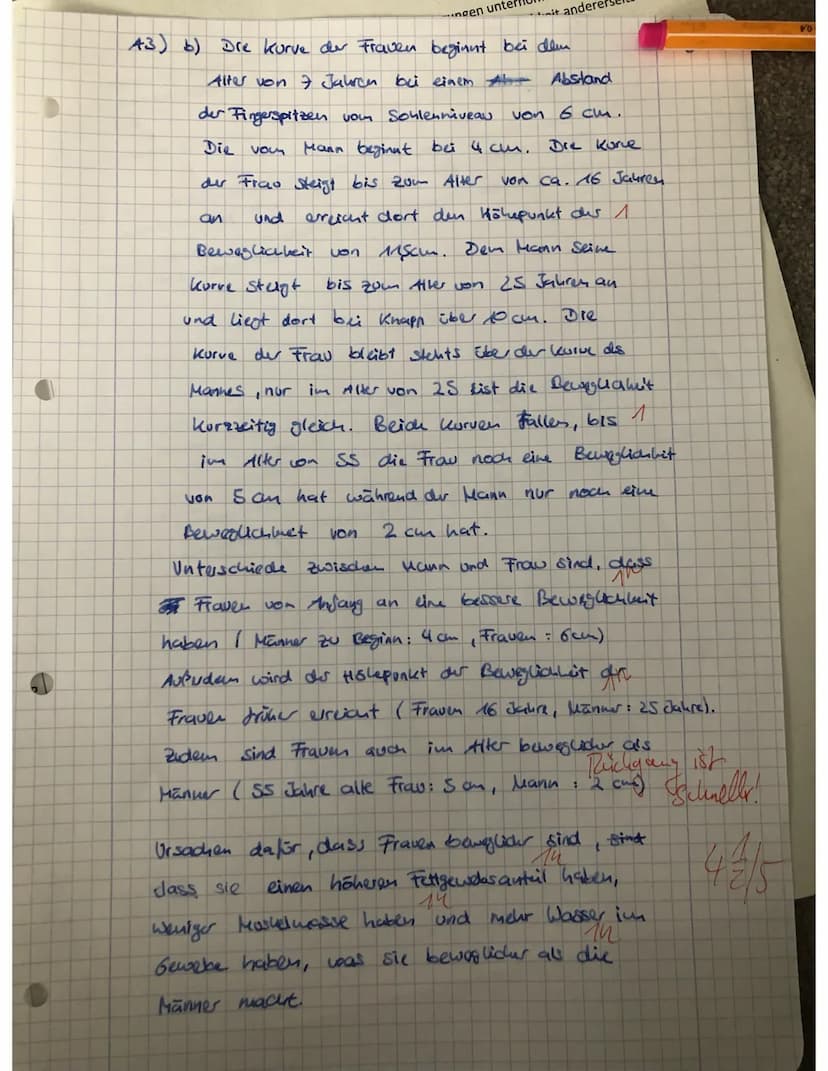 ungen untern
it andererseits
A3) b) Die Kurve der Frauen beginnt bei dem
Alter von 7 Jahren bei einem Abstand
der Fingerspitzen vom Sohlenniveau von 6 cm.
Die vom Mann beginnt bei 4 cm. Die Kurve
der Frau steigt bis zum Alter von ca. 16 Jahren
an und erreicht dort den Höhepunkt der 1
Beweglichkeit von 11,5cm. Dem Mann seine
Kurve steigt bis zum Alter von 25 Jahren an
und liegt dort bei knapp über 10 cm. Die
Kurve der Frau bleibt stehts über der Kurve des
Mannes, nur im Alter von 25 ist die Beweglichkeit
kurzzeitig gleich. Beide Kurven fallen, bis 1
im Alter von 55 die Frau noch eine Beweglichkeit
von 5 cm hat während der Mann nur noch eine
Beweglichkeit von 2 cm hat.
Unterschiede zwischen Mann und Frau sind, dass
Frauen von Anfang an eine bessere Beweglichkeit
haben (Männer zu Beginn: 4 cm, Frauen: 6cm)
Außerdem wird der Höhepunkt der Beweglichkeit
Frauen früher erreicht (Frauen 16 Jahre, Männer: 25 Jahre).
Zudem sind Frauen auch im Alter beweglicher als
Rückgang ist
Männer (55 Jahre alte Frau: 5 cm, Mann: 2 cm) schneller!
Ursachen dafür, dass Frauen beweglicher sind, sind
dass sie einen höheren Fettgewebsanteil haben,
4 1/2/5
weniger Muskelmasse haben und mehr Wasser im
Gewebe haben, was sie beweglicher als die
Männer macht.